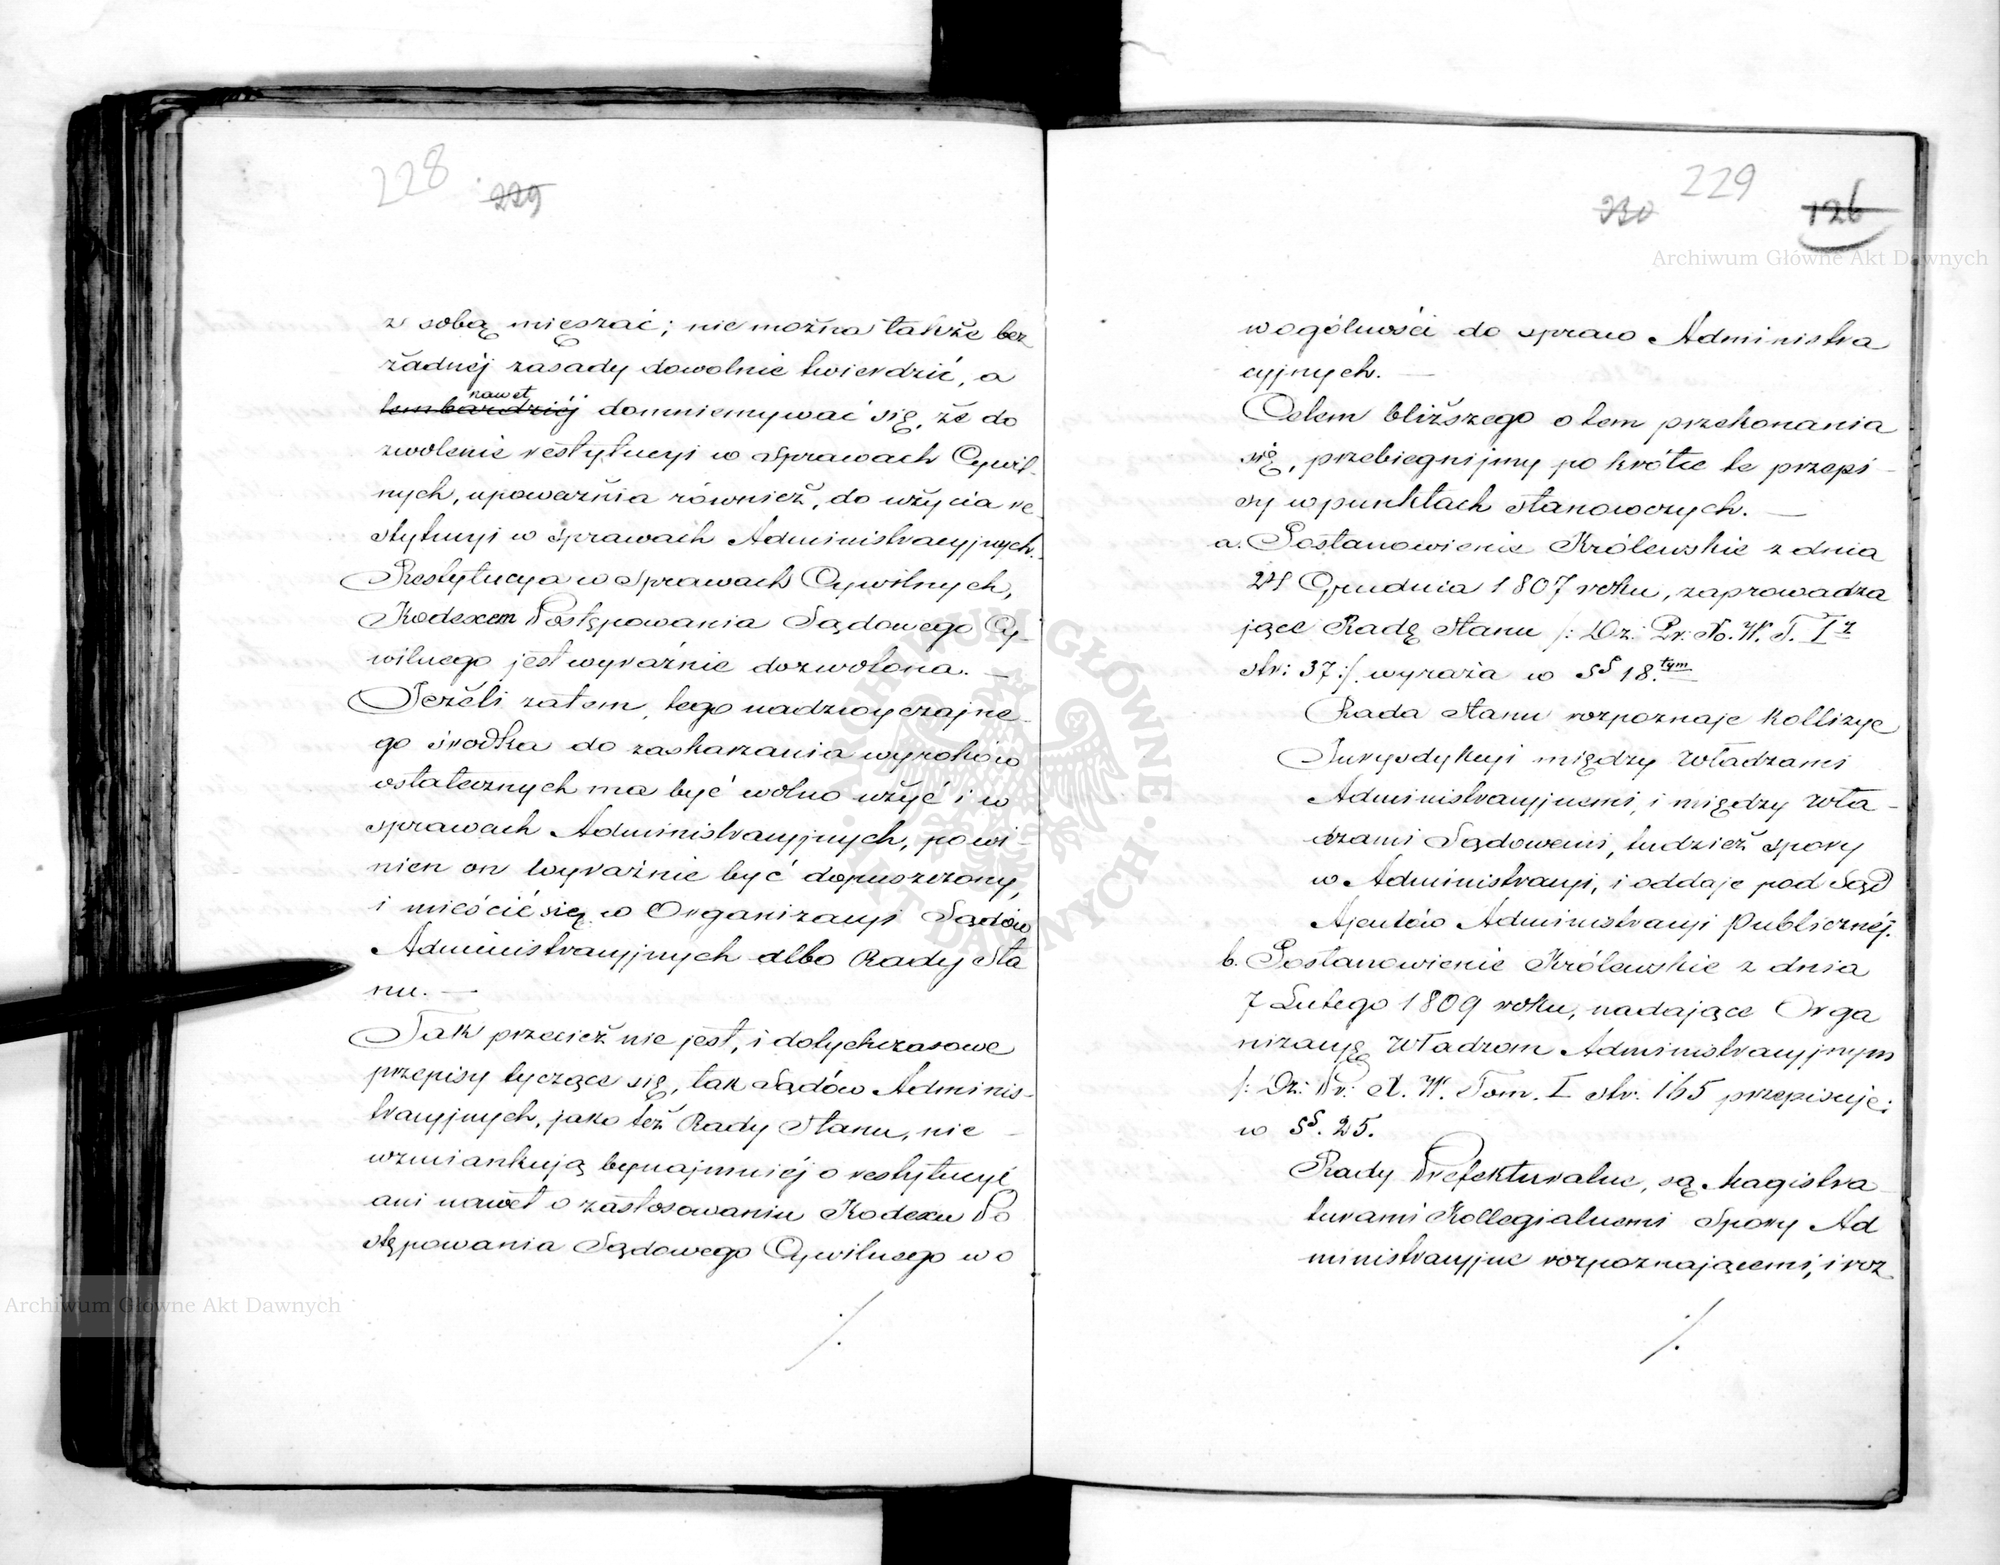 228
229
z sobą mięszać; nie można także bez
żadnéj zasady dowolnie twierdzić, a
nawet
tembardziéj domniemywać się, że do
zwolenie restytucyi w Sprawach Cywil-
nych, upoważnia również, do użycia re
stytucyi w Sprawach Administracyjnych.
Restytucya w Sprawach Cywilnych,
Kodexem Postępowania Sądowego Cy-
wilnego jest wyraźnie dozwolona. —
Jeżeli zatem, tego nadzwyczajne-
go środka do zaskarżania wyroków
ostatecznych ma być wolno użyć i w
sprawach Administracyjnych, powi-
nien on wyraźnie być dopuszczony,
i mieścić się w Organizacyi Sądów
Administracyjnych albo Rady Sta
nu. —
Tak przecież nie jest, i dotychczasowe
przepisy tyczące się, tak Sądów Adminis-
tracyjnych, jako też Rady Stanu, nie —
wzmiankują bynajmniéj o restytucyi
ani nawet o zastosowaniu Kodexu Po
stępowania Sądowego Cywilnego w o
./.
229
230
126
w ogólności do spraw Administra
cyjnych. —
Celem bliższego o tem przekonania
się, przebiegnijmy po krótce te przepi-
sy w punktach stanowczych. —
a. Postanowienie Królewskie z dnia
24 Grudnia 1807 roku, zaprowadza
jące Radę Stanu /: Dz: Pr: Xo. W. T. I
str: 37 :/ wyraża w §§ 18.tym
Rada Stanu rozpoznaje Kollizye
Jurysdykcyi między Władzami
Administracyjnemi, i między Wła-
dzami Sądowemi, tudzież spory
w Administracyi, i oddaje pod Sąd
Ajentów Administracyi Publicznéj.
b. Postanowienie Królewskie z dnia
7 Lutego 1809 roku, nadające Orga
nizacyę Władzom Administracyjnym
/: Dz: Pr: X. W. Tom. I str. 165 przepisuje:
w §§. 25.
Rady Prefekturalne, są Magistra
turami Kollegialnemi Spory Ad
ministracyjne rozpoznającemi, i roz
./.
Archiwum Główne Akt Dawnych
Archiwum Główne Akt Dawnych
ARCHIWUM GŁÓWNE AKT DAWNYCH